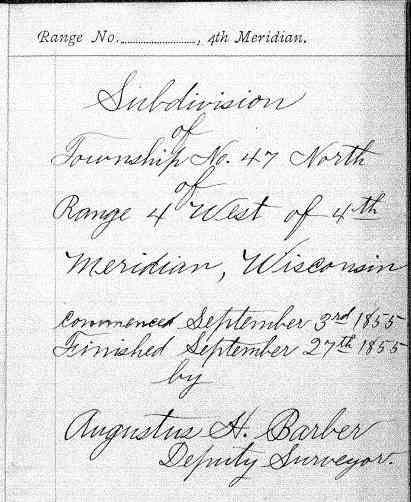 Range No. ...................., 4th Meridian.
Subdivision
of
Township No. 47 North
of
Range 4 West of 4th
Meridian, Wisconsin
Commenced September 3rd 1855
Finished September 27th 1855
by
Augustus H. Barber
Deputy Surveyor.